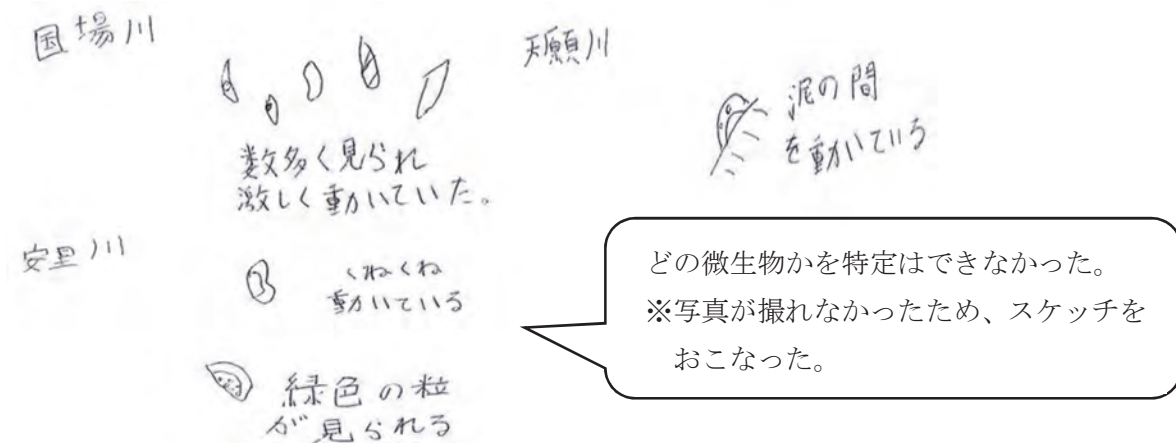 国場川
数多く見られ
激しく動いていた。
天願川
泥の間
を動いている
安里川
くねくね
動いている
緑色の粒
が見られる
どの微生物かを特定はできなかった。
※写真が撮れなかったため、スケッチを
おこなった。